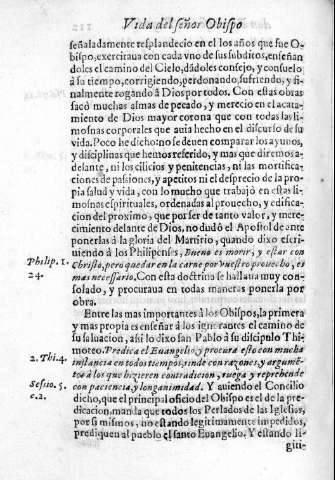 Vida del señor Obispo
señaladamente resplandecio en el los años que fue O-
bispo, exercitaua con cada vno de sus subditos, enseñan
doles el camino del Cielo, dãdoles consejo, y consuelo
â su tiempo, corrigiendo, perdonando, sufriendo, y fi-
nalmente rogando à Dios por todos. Con estas obras
sacó muchas almas de pecado, y merecio en el acata-
miento de Dios mayor corona que con todas las li-
mosnas corporales que auia hecho en el discurso de su
vida. Poco he dicho: no se deuen comparar los ayunos,
y disciplinas que hemos referido, y mas que diremos a-
delante, ni los cilicios y penitencias, ni las mortifica-
ciones de passiones, y apetitos ni el desprecio de la pro
pia salud y vida, con lo mucho que trabajó en estas li-
mosnas espirituales, ordenadas al prouecho, y edifica-
cion del proximo, que por ser de tanto valor, y mere-
cimiento delante de Dios, no dudó el Apostol de ante
ponerlas à la gloria del Martirio, quando dixo escri-
uiendo à los Philipenses, Bueno es morir, y estar con
Philip. 1.
24.
Christo, pero quedar en la carne por vuestro prouecho, es
mas necessario. Con esta doctrina se hallaua muy con-
solado, y procuraua en todas maneras ponerla por
obra.
Entre las mas importantes à los Obispos, la primera
y mas propia es enseñar à los ignorantes el camino de
su saluacion, assi lo dixo san Pablo à su discipulo Thi-
moteo. Predica el Euangelio, y procura esto con mucha
2. Thi. 4.
instancia en todos tiempos, rinde con razones, y argumẽ-
tos à los que hizieren contradicion, ruega y reprehende
Sessio. 5.
c. 2.
con paciencia, y longanimidad. Y auiendo el Concilio
dicho, que el principal oficio del Obispo es el de la pre-
dicacion, manda que todos los Perlados de las Iglesias,
por si mismos, no estando legitimamente impedidos,
prediquen al pueblo el santo Euangelio. Y estando li-
giti-